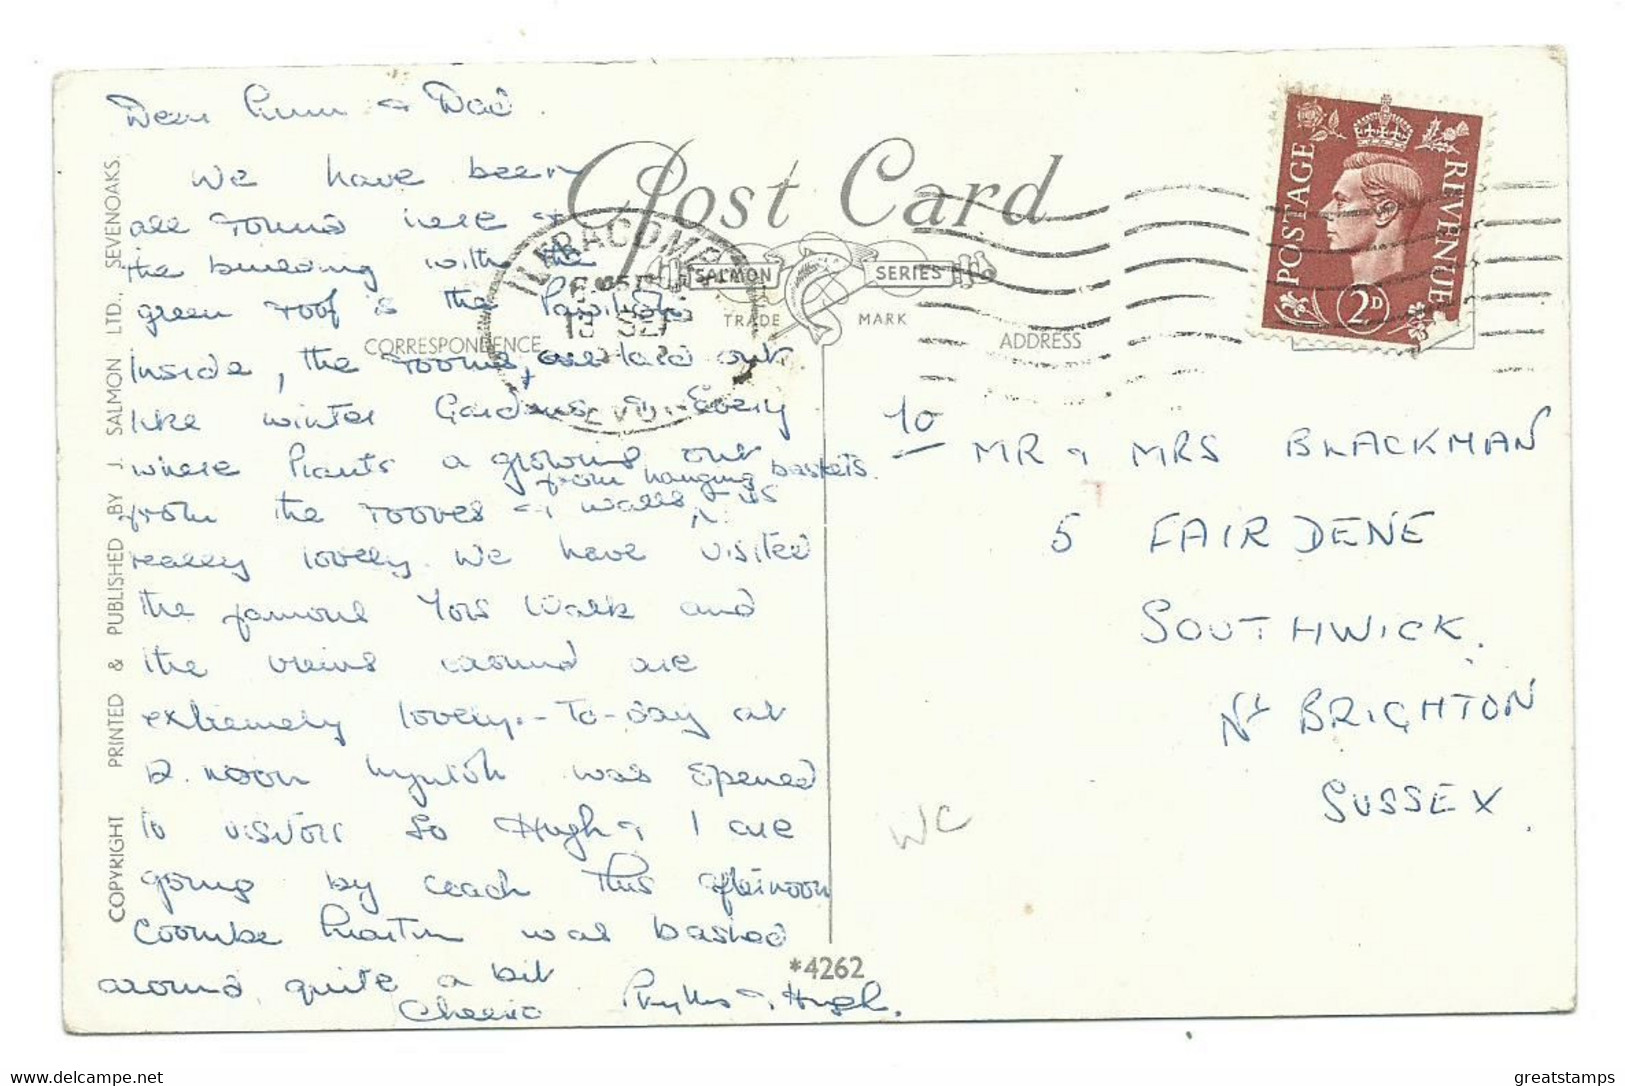 Dear Mum & Dad.
We have been
all round here &
the building with the
green roof is the Pavilion
Inside, the rooms, are laid out
like winter Gardens & Every
where Plants a growing out
from hanging baskets
from the rooves & walls, its
really lovely. We have visited
the famous Tors Walk and
the views around are
extremely lovely.- To-day at
12. noon Lynton was opened
to visitors so Hugh & I are
going by coach this afternoon
Coombe Martin was bashed
around quite a bit
Cheerio Phyllis & Hugh.
COPYRIGHT PRINTED & PUBLISHED BY J. SALMON LTD., SEVENOAKS.
Post Card
SALMON SERIES
TRADE MARK
CORRESPONDENCE
ADDRESS
ILFRACOMBE
13 SEP
DEVON
POSTAGE REVENUE
2D
To
MR & MRS BLACKMAN
5 FAIRDENE
SOUTHWICK.
Nr BRIGHTON
SUSSEX.
WC
*4262
delcampe.net
greatstamps